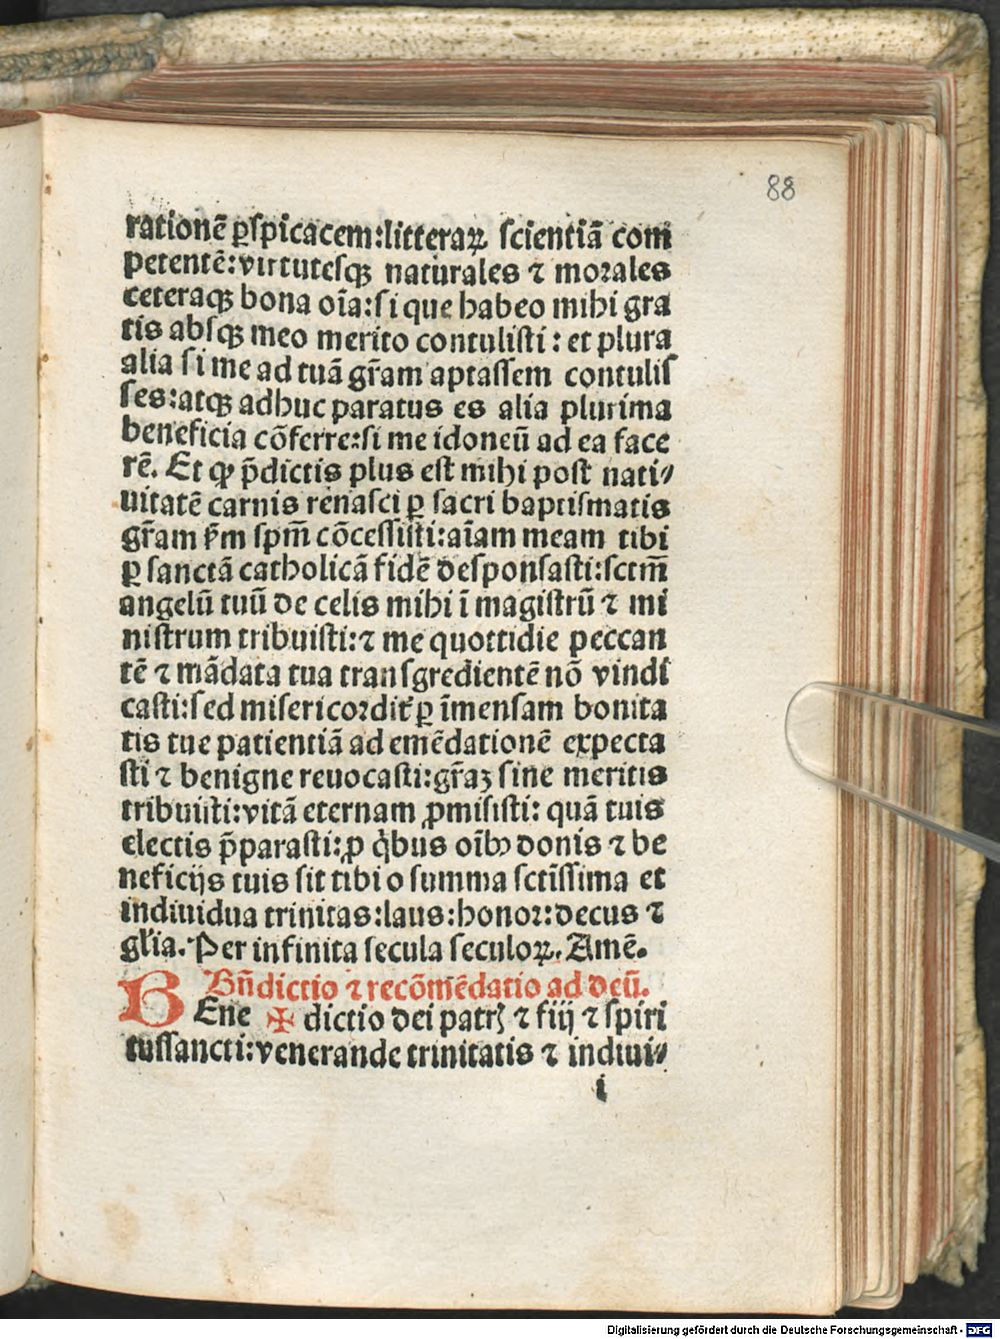 88
rationē ꝑspicacem:litteraꝝ scientiā com
petentē:virtutesqꝫ naturales ⁊ moꝛales
ceteraqꝫ bona oīa:si que habeo mihi gra
tis absqꝫ meo merito contulisti: et plura
alia si me ad tuā gr̄am aptassem contulis
ses:atqꝫ adhuc paratus es alia plurima
beneficia cōferre:si me idoneū ad ea face
rē. Et ꝙ p̄dictis plus est mihi post nati⸗
uitatē carnis renasci ꝑ sacri baptismatis
gr̄am ẜm spm̄ cōcessisti:aīam meam tibi
ꝑ sanctā catholicā fidē desponsasti:sctm̄
angelū tuū de celis mihi ī magistrū ⁊ mi
nistrum tribuisti:⁊ me quottidie peccan
tē ⁊ mādata tua transgredientē nō vindi
casti:sed misericoꝛdit̄ ꝑ īmensam bonita
tis tue patientiā ad emēdationē expecta
sti ⁊ benigne reuocasti:gr̄aꝫ sine meritis
tribuisti:vitā eternam ꝓmisisti: quā tuis
electis p̄parasti:ꝓ qͥbus oībꝰ donis ⁊ be
neficijs tuis sit tibi o summa sctīssima et
indiuidua trinitas:laus:honoꝛ:decus ⁊
gl̄ia. Per infinita secula seculoꝝ. Amē.
Bn̄dictio ⁊ recōmēdatio ad deū.
BEne ✠ dictio dei patrꝭ ⁊ fiij ⁊ spiri
tussancti:venerande trinitatis ⁊ indiui⸗
i
Digitalisierung gefördert durch die Deutsche Forschungsgemeinschaft - DFG